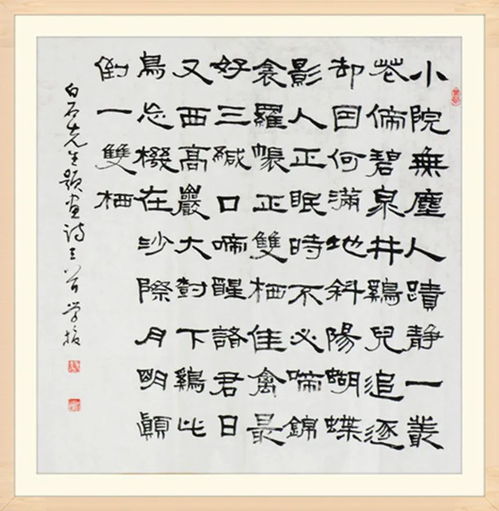 小院無塵人蹟靜一叢
花傍碧泉井鷄兒追逐
却因何滿地斜陽蝴蝶
影人正眠時不必啼錦
衾羅帳正雙栖佳禽最
好三緘口啼醒諸君日
又西高巖大對下鷄此
鳥忘機在沙際月明顛
倒一雙栖
白石先生題畫詩三首